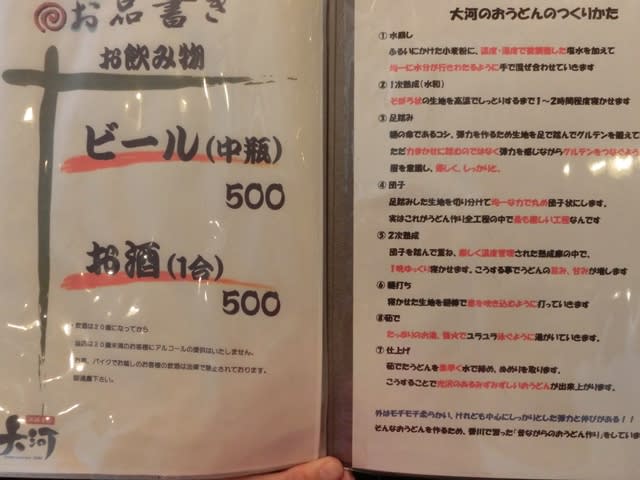 お品書き
お飲み物
ビール(中瓶)
500
お酒(1合)
500
・飲酒は20歳になってから
当店は20歳未満のお客様にアルコールの提供はいたしません。
お車、バイクでお越しのお客様の飲酒は法律で禁止されております。
御遠慮下さい。
大河
大河のおうどんのつくりかた
①水廻し
ふるいにかけた小麦粉に、温度・濃度で微調整した塩水を加えて
均一に水分が行きわたるように手で混ぜ合わせていきます
②1次熟成(水和)
そぼろ状の生地を高温でしっとりするまで1~2時間程度寝かせます
③足踏み
麺の命であるコシ、弾力を作るため生地を足で踏んでグルテンを鍛えて
ただ力まかせに踏むのではなく弾力を感じながらグルテンをつなぐよう
層を意識し、優しく、しっかりと。
④団子
足踏みした生地を切り分けて均一な力で丸め団子状にします。
実はこれがうどん作り全工程の中で最も難しい工程なんです
⑤2次熟成
団子を踏んで重ね、厳しく温度管理された熟成庫の中で、
1晩ゆっくり寝かせます。こうする事でうどんの旨み、甘みが増します
⑥麺打ち
寝かせた生地を麺棒で息を吹き込むように打っていきます
⑧茹で
たっぷりのお湯、強火でユラユラ泳ぐように湯がいていきます。
⑦仕上げ
茹でたうどんを素早く水で締め、ぬめりを取ります。
こうすることで光沢のあるみずみずしいおうどんが出来上がります。
外はモチモチ柔らかい、けれども中心にしっかりとした弾力と伸びがある!!
そんなおうどんを作るため、香川で習った「昔ながらのおうどん作り」をしていま